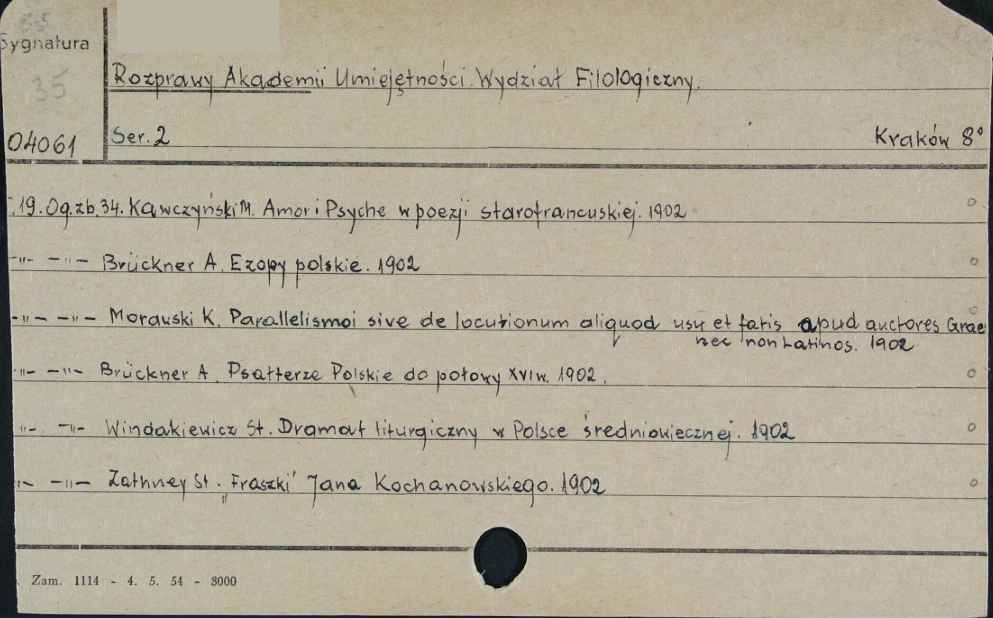 Sygnatura
35
Rozprawy Akademii Umiejętności. Wydział Filologiczny.
04061
Ser. 2 Kraków 8°
19. Og. zb. 34. Kawczyński M. Amor i Psyche w poezji starofrancuskiej. 1902
-"- -"- Brückner A. Ezopy polskie. 1902
-"- -"- Morawski K. Parallelismoi sive de locutionum aliquod usu et fatis apud auctores Grae
nec non Latinos. 1902
-"- -"- Brückner A. Psałterze Polskie do połowy XVI w. 1902.
-"- -"- Windakiewicz St. Dramat liturgiczny w Polsce średniowiecznej. 1902
-"- -"- Zathney St. „Fraszki" Jana Kochanowskiego. 1902
Zam. 1114 - 4. 5. 54 - 8000